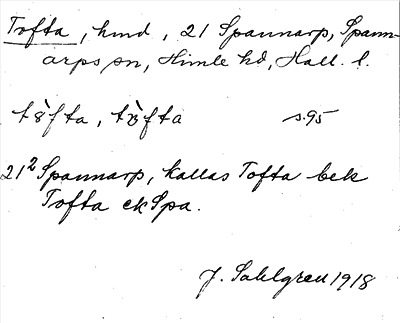 Tofta, hmd, 21 Spannarp, Spann-
arps sn, Himle hd, Hall. l.
tòfta, tòfta s. 95
21² Spannarp, kallas Tofta bek
Tofta ek Spa.
J. Sahlgren 1918